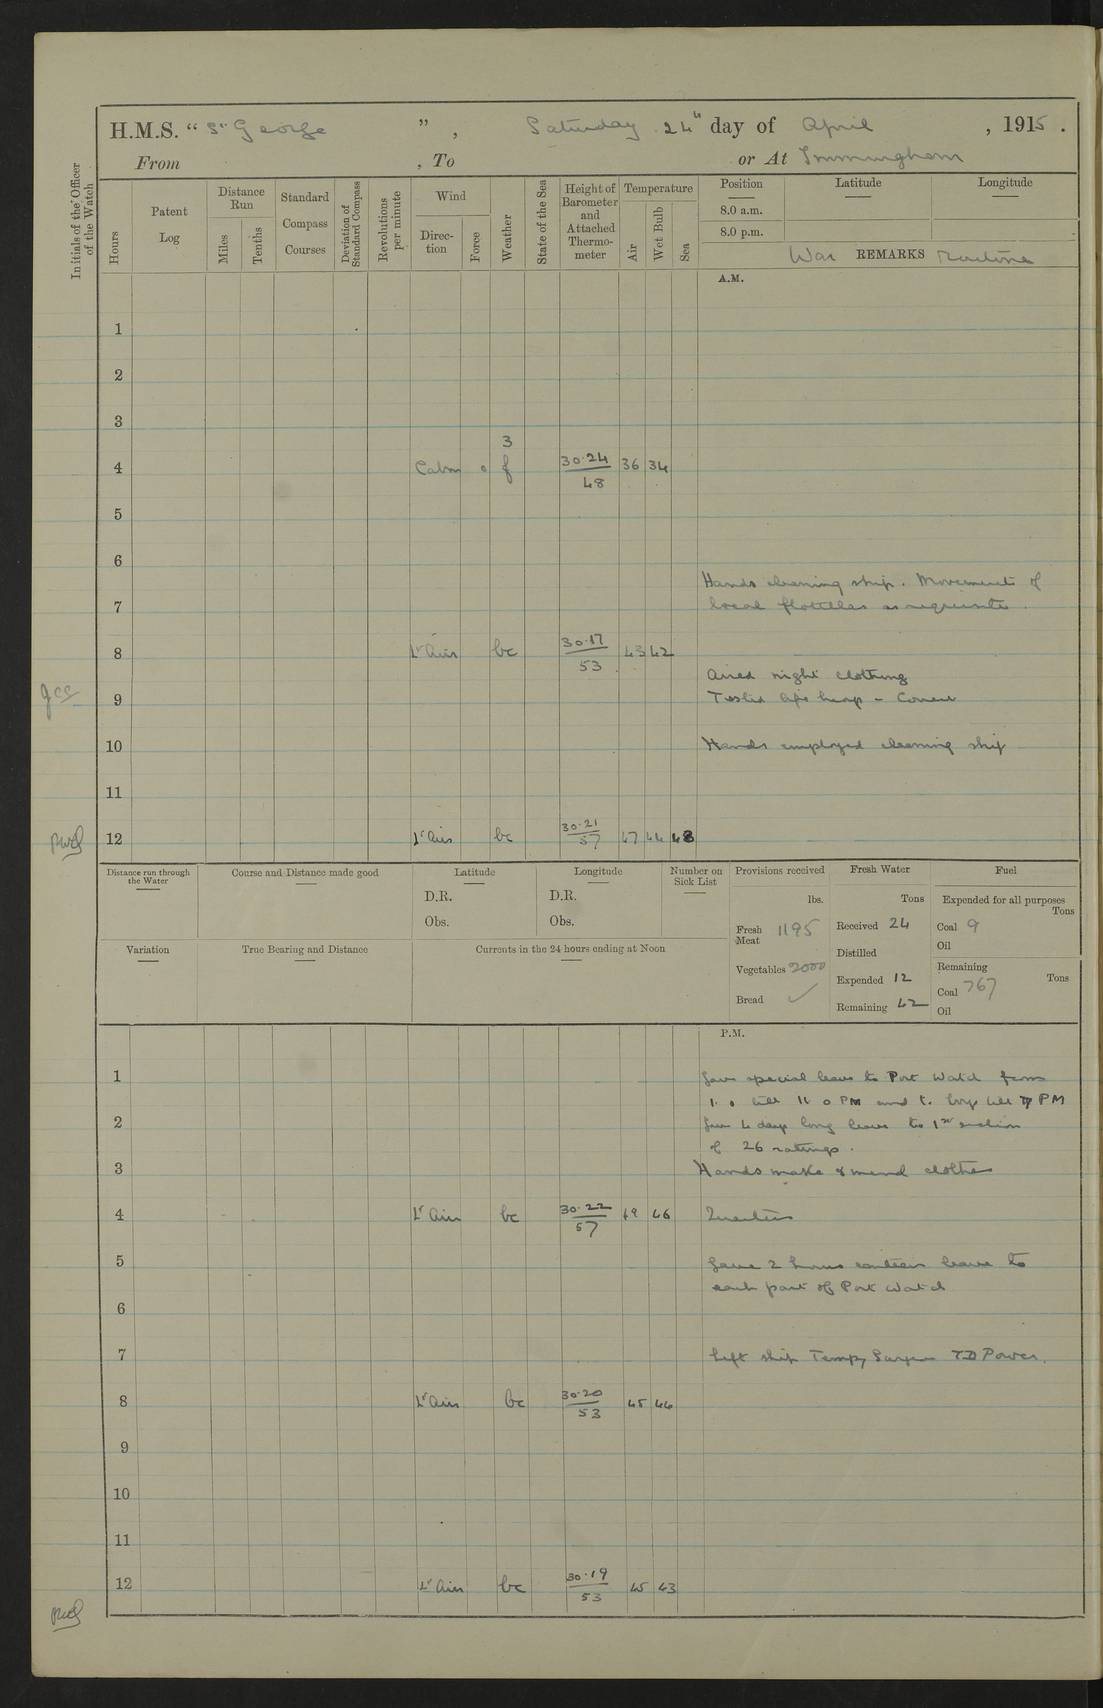 H.M.S. " St George ", Saturday 24th day of April, 1915.
From , To or At Immingham
Initials of the Officer of the Watch
Hours
Patent Log
Distance Run
Miles
Tenths
Standard Compass Courses
Deviation of Standard Compass
Revolutions per minute
Wind
Direction
Force
Weather
State of the Sea
Height of Barometer and Attached Thermometer
Temperature
Air
Wet Bulb
Sea
Position Latitude Longitude
8.0 a.m.
8.0 p.m.
War REMARKS Routine
A.M.
1
2
3
4 Calm 0 3 f 30.24 48 36 34
5
6
Hands cleaning ship. Movement of
7 local flotillas as requisite.
8 Lt Airs bc 30.17 53 43 42
Aired night clothing
9 Tested life buoys - Correct
10 Hands employed cleaning ship
11
12 Lt Airs bc 30.21 57 47 44 48
Distance run through the Water
Course and Distance made good
Latitude
D.R.
Obs.
Longitude
D.R.
Obs.
Number on Sick List
Provisions received
lbs.
Fresh Meat 1195
Vegetables 2000
Bread ✓
Fresh Water
Tons
Received 24
Distilled
Expended 12
Remaining 42
Fuel
Expended for all purposes
Tons
Coal 9
Oil
Remaining Tons
Coal 767
Oil
Variation
True Bearing and Distance
Currents in the 24 hours ending at Noon
P.M.
1 Gave special leave to Port Watch from
1.0 till 11 0 PM and to boys till 7 PM
2 Gave 4 days long leave to 1st section
of 26 ratings.
3 Hands make & mend clothes
4 Lt Airs bc 30.22 57 49 46 Quarters
5 Gave 2 hours canteen leave to
each part of Port Watch
6
7 Left ship Tempy Surgeon TD Power.
8 Lt Airs bc 30.20 53 45 44
9
10
11
12 Lt Airs bc 30.19 53 45 43